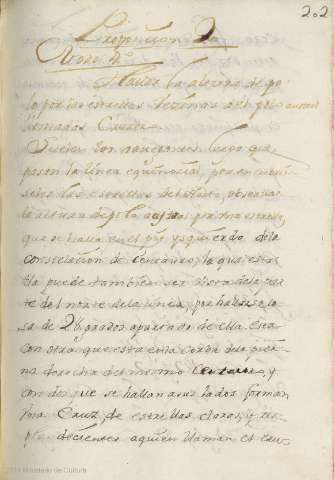 202
Proposicion 2a
Hallar la altura de po
lo por las estrellas vezinas del polo austral
llamadas Cruzero
Suelen los nauegantes luego que
pasan la linea equinocial, por encubrir
seles las estrellas del Norte, obseruar
la altura de polo austral por una estrella
que se halla en el pie ysquierdo de la
constelacion de Centauro, la qual estre
lla puede tambien ser vista de la par
te del norte de la linea, por hallarse lo
sa de 28 grados apartado de ella. Esta
con otra que esta en la corba del pie
na derecha del mesmo Centauro, y
con dos que se hallan a sus lados forman
una Cruz, de estrellas claras, y res
plandecientes a quien llaman el cru
2011 Ministerio de Cultura